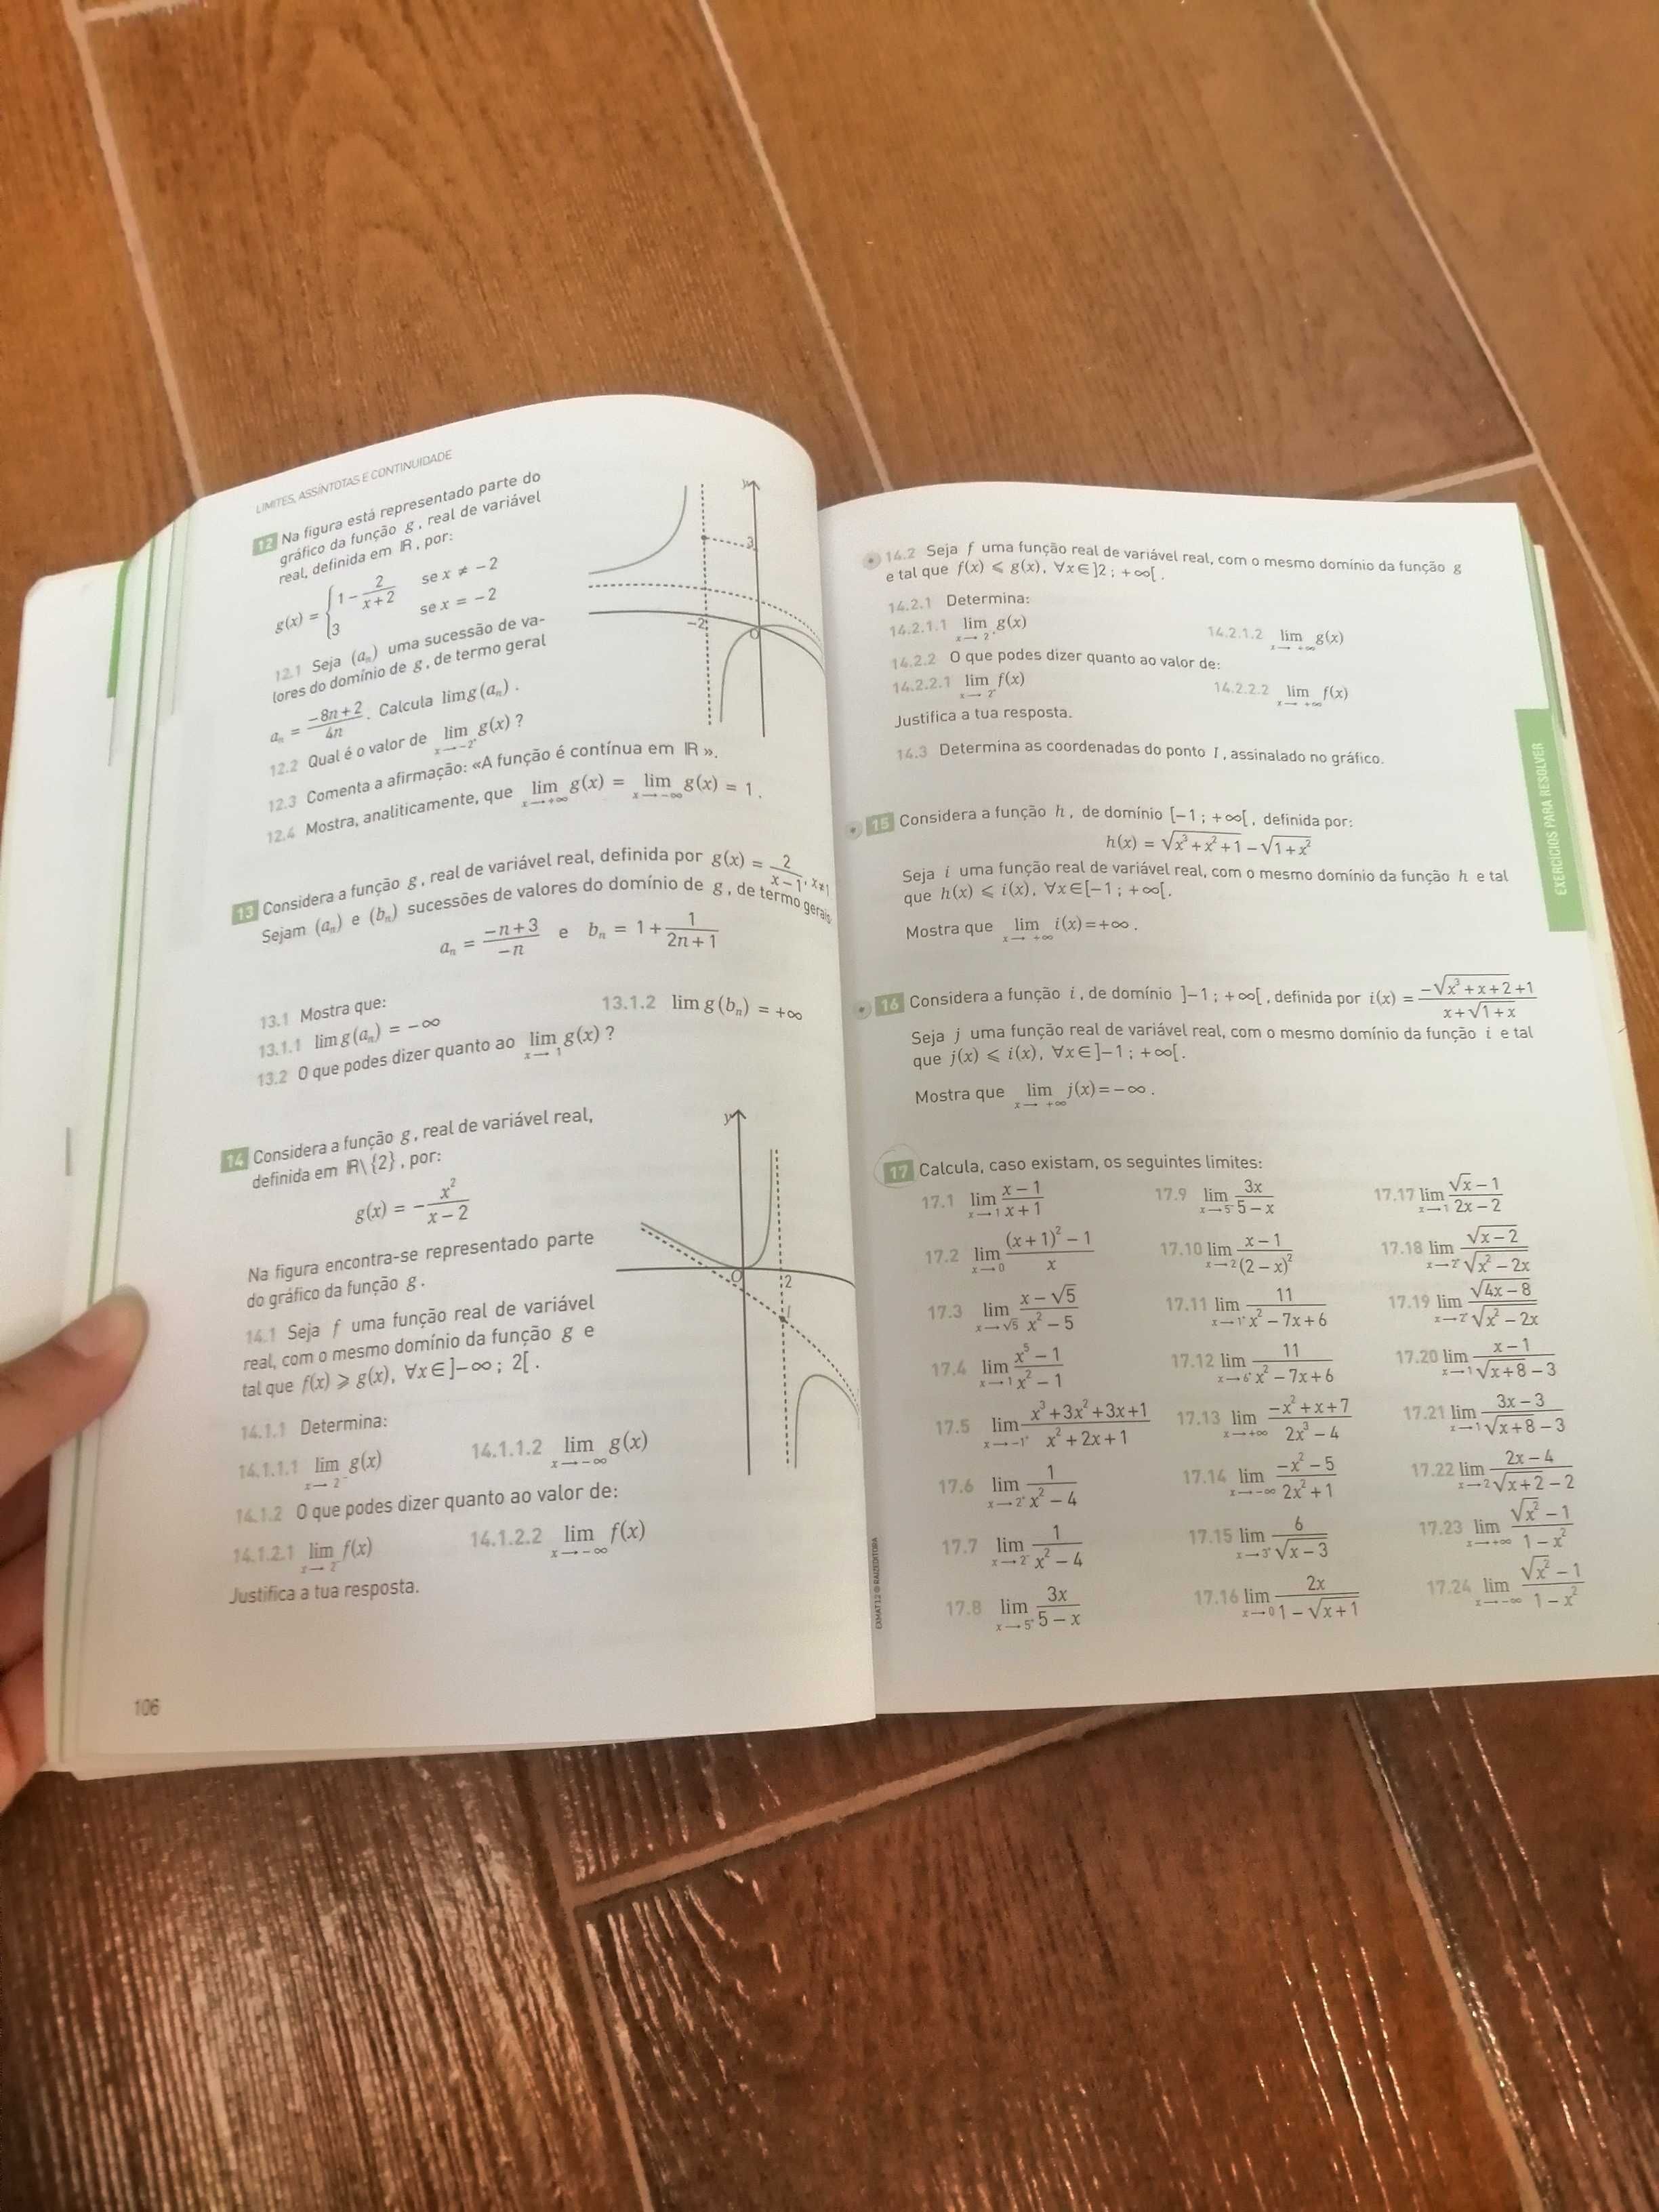 LIMITES, ASSÍNTOTAS E CONTINUIDADE
12 Na figura está representado parte do
gráfico da função g, real de variável
real, definida em ℝ, por:
g(x) = { 1 − 2/(x+2) se x ≠ −2
3 se x = −2
12.1 Seja (aₙ) uma sucessão de va-
lores do domínio de g, de termo geral
aₙ = (−8n+2)/4n. Calcula lim g(aₙ).
12.2 Qual é o valor de lim x→−2⁺ g(x)?
12.3 Comenta a afirmação: «A função é contínua em ℝ».
12.4 Mostra, analiticamente, que lim x→+∞ g(x) = lim x→−∞ g(x) = 1.
y
3
−2
O
13 Considera a função g, real de variável real, definida por g(x) = 2/(x−1), x≠1
Sejam (aₙ) e (bₙ) sucessões de valores do domínio de g, de termo gerais
aₙ = (−n+3)/(−n) e bₙ = 1 + 1/(2n+1)
13.1 Mostra que:
13.1.1 lim g(aₙ) = −∞
13.1.2 lim g(bₙ) = +∞
13.2 O que podes dizer quanto ao lim x→1 g(x)?
14 Considera a função g, real de variável real,
definida em ℝ\{2}, por:
g(x) = −x²/(x−2)
Na figura encontra-se representado parte
do gráfico da função g.
14.1 Seja f uma função real de variável
real, com o mesmo domínio da função g e
tal que f(x) ⩾ g(x), ∀x∈]−∞; 2[.
14.1.1 Determina:
14.1.1.1 lim x→2⁻ g(x)
14.1.1.2 lim x→−∞ g(x)
14.1.2 O que podes dizer quanto ao valor de:
14.1.2.1 lim x→2⁻ f(x)
14.1.2.2 lim x→−∞ f(x)
Justifica a tua resposta.
y
O
2
I
106
14.2 Seja f uma função real de variável real, com o mesmo domínio da função g
e tal que f(x) ⩽ g(x), ∀x∈]2; +∞[.
14.2.1 Determina:
14.2.1.1 lim x→2⁺ g(x)
14.2.1.2 lim x→+∞ g(x)
14.2.2 O que podes dizer quanto ao valor de:
14.2.2.1 lim x→2⁺ f(x)
14.2.2.2 lim x→+∞ f(x)
Justifica a tua resposta.
14.3 Determina as coordenadas do ponto I, assinalado no gráfico.
15 Considera a função h, de domínio [−1; +∞[, definida por:
h(x) = √(x³+x²+1) − √(1+x²)
Seja i uma função real de variável real, com o mesmo domínio da função h e tal
que h(x) ⩽ i(x), ∀x∈[−1; +∞[.
Mostra que lim x→+∞ i(x)=+∞.
16 Considera a função i, de domínio ]−1; +∞[, definida por i(x) = (−√(x³+x+2)+1)/(x+√(1+x))
Seja j uma função real de variável real, com o mesmo domínio da função i e tal
que j(x) ⩽ i(x), ∀x∈]−1; +∞[.
Mostra que lim x→+∞ j(x)=−∞.
17 Calcula, caso existam, os seguintes limites:
17.1 lim x→1 (x−1)/(x+1)
17.2 lim x→0 ((x+1)²−1)/x
17.3 lim x→√5 (x−√5)/(x²−5)
17.4 lim x→1 (x⁵−1)/(x²−1)
17.5 lim x→−1⁺ (x³+3x²+3x+1)/(x²+2x+1)
17.6 lim x→2⁺ 1/(x²−4)
17.7 lim x→2⁻ 1/(x²−4)
17.8 lim x→5⁺ 3x/(5−x)
17.9 lim x→5⁻ 3x/(5−x)
17.10 lim x→2 (x−1)/(2−x)²
17.11 lim x→1⁺ 11/(x²−7x+6)
17.12 lim x→6⁺ 11/(x²−7x+6)
17.13 lim x→+∞ (−x²+x+7)/(2x³−4)
17.14 lim x→−∞ (−x²−5)/(2x²+1)
17.15 lim x→3⁺ 6/√(x−3)
17.16 lim x→0 2x/(1−√(x+1))
17.17 lim x→1 (√x−1)/(2x−2)
17.18 lim x→2⁺ √(x−2)/√(x²−2x)
17.19 lim x→2⁺ √(4x−8)/√(x²−2x)
17.20 lim x→1 (x−1)/(√(x+8)−3)
17.21 lim x→1 (3x−3)/(√(x+8)−3)
17.22 lim x→2 (2x−4)/(√(x+2)−2)
17.23 lim x→+∞ (√x²−1)/(1−x²)
17.24 lim x→−∞ (√x²−1)/(1−x²)
EXERCÍCIOS PARA RESOLVER
EXMAT12 © RAIZEDITORA